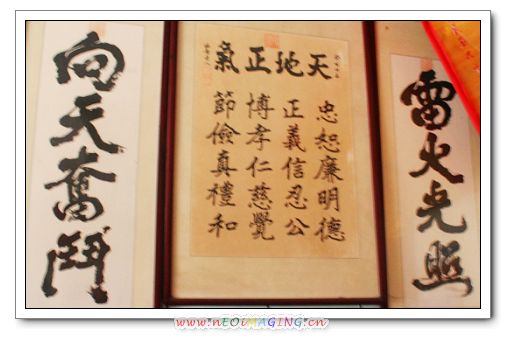 雷火光照
天地正氣
忠恕廉明德
正義信忍公
博孝仁慈覺
節儉真禮和
向天奮鬥
www.nEOiMAGING.cn